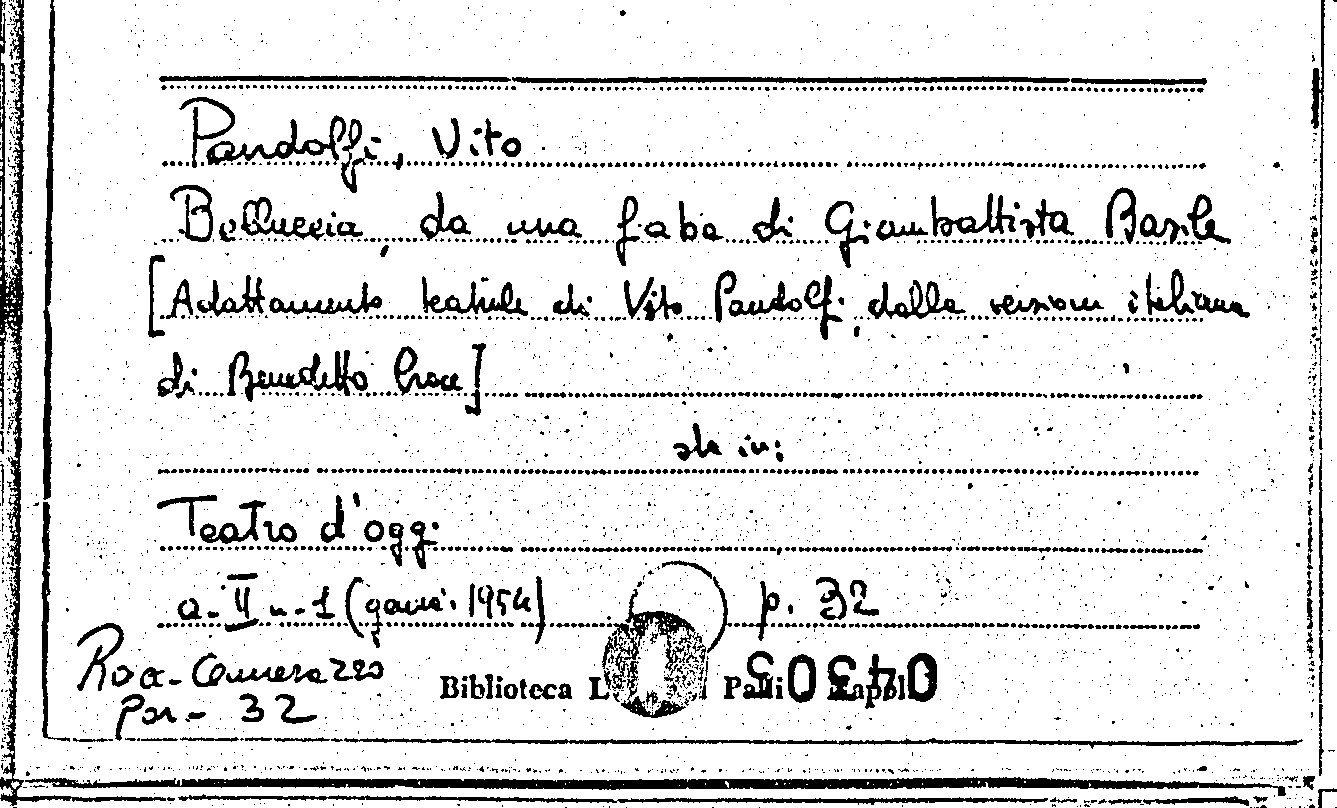 Pandolfi, Vito
Belluccia, da una faba di Giambattista Basile
[Adattamento teatrale di Vito Pandolfi, dalla versione italiana
di Benedetto Croce]
sta in:
Teatro d'oggi
a. II n. 1 (genn. 1954) p. 32
Per. 32
Biblioteca